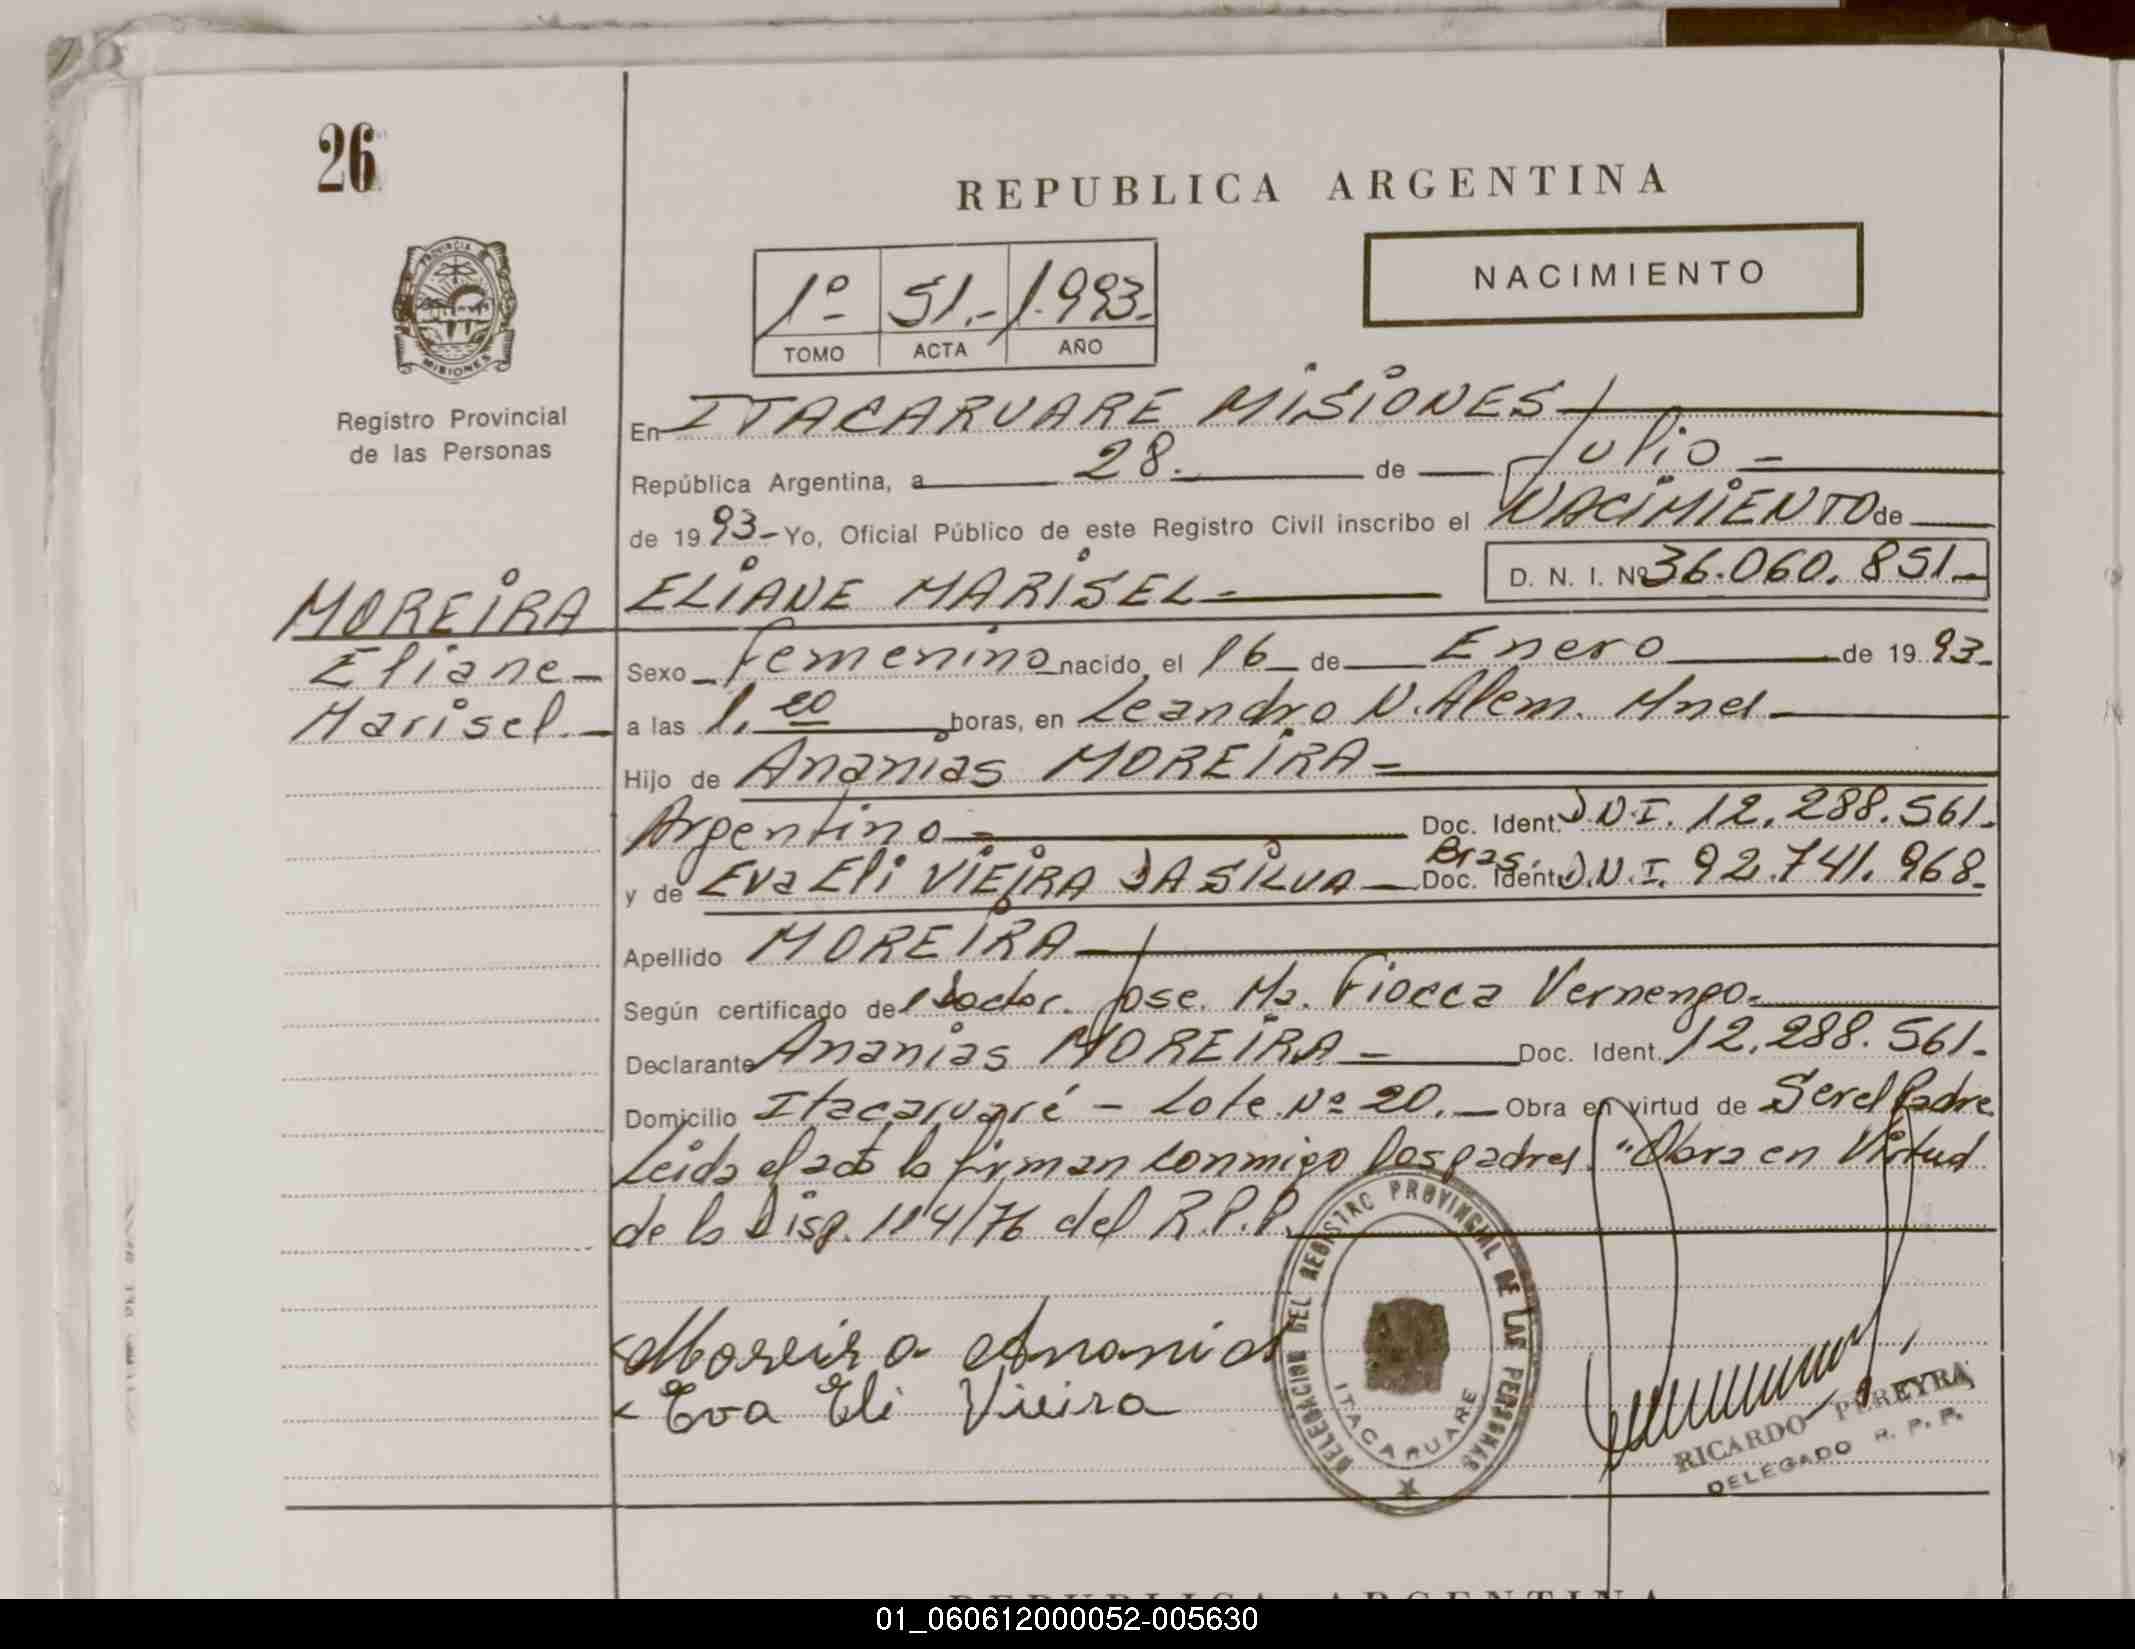 26
REPUBLICA ARGENTINA
NACIMIENTO
1º 51.- 1.993.-
TOMO ACTA AÑO
PROVINCIA DE
MISIONES
Registro Provincial
de las Personas
En ITACARUARE MISIONES
República Argentina, a 28. de Julio -
de 1993- Yo, Oficial Público de este Registro Civil inscribo el NACIMIENTO de
MOREIRA ELIANE MARISEL- D. N. I. Nº 36.060.851-
Eliane- Sexo - femenino nacido, el 16 de Enero de 19 93-
Marisel.- a las 1,00 horas, en Leandro N. Alem. Mnes -
Hijo de Ananias MOREIRA-
Argentino- Doc. Ident. D.N.I. 12.288.561.-
Bras.
y de Eva Eli VIEIRA DA SILVA - Doc. Ident. D.N.I. 92.741.968-
Apellido MOREIRA
Según certificado de Doctor. Jose. Ma. Fiocca Vernengo.
Declarante Ananias MOREIRA - Doc. Ident. 12.288.561-
Domicilio Itacaruaré - Lote Nº 20. - Obra en virtud de Ser el Padre
Leida el acta la firman conmigo los padres. "Obra en Virtud
de la Disp. 114/76 del R.P.P.
Moreira Ananias
Eva Eli Vieira
DELEGACION DEL REGISTRO PROVINCIAL DE LAS PERSONAS
ITACARUARE
RICARDO PEREYRA
DELEGADO R. P. P.
REPUBLICA ARGENTINA
01_060612000052-005630